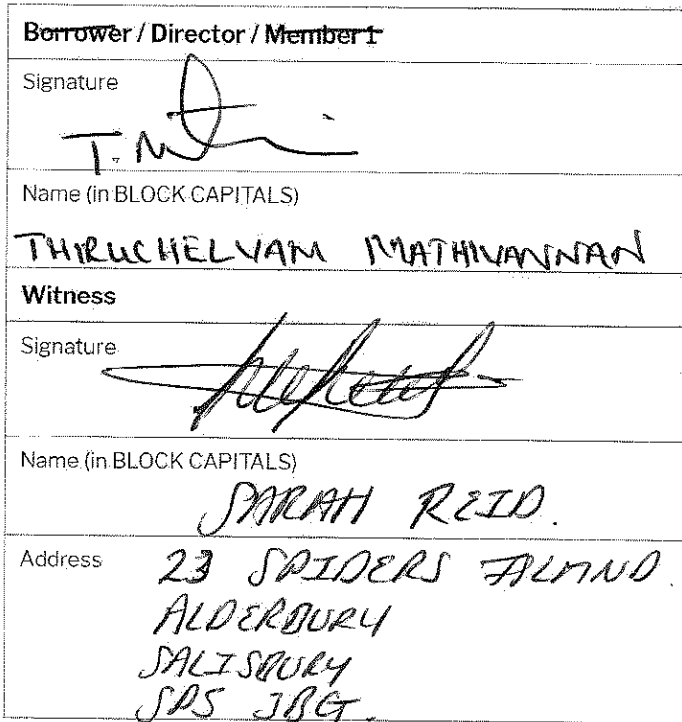 Borrower / Director / Member 1
Signature
T. M
Name (in BLOCK CAPITALS)
THIRUCHELVAM MATHIVANNAN
Witness
Signature
Name (in BLOCK CAPITALS)
SARAH REID.
Address 23 SPIDERS ISLAND.
ALDERBURY
SALISBURY
SP5 3BG.